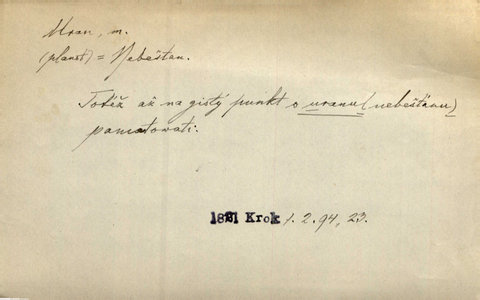 Uran, m.
(planet) = Nebeštan.
Totéž až na gistý punkt o uranu (nebeštanu)
pamatowati.
1821 Krok 1.2.94, 23.